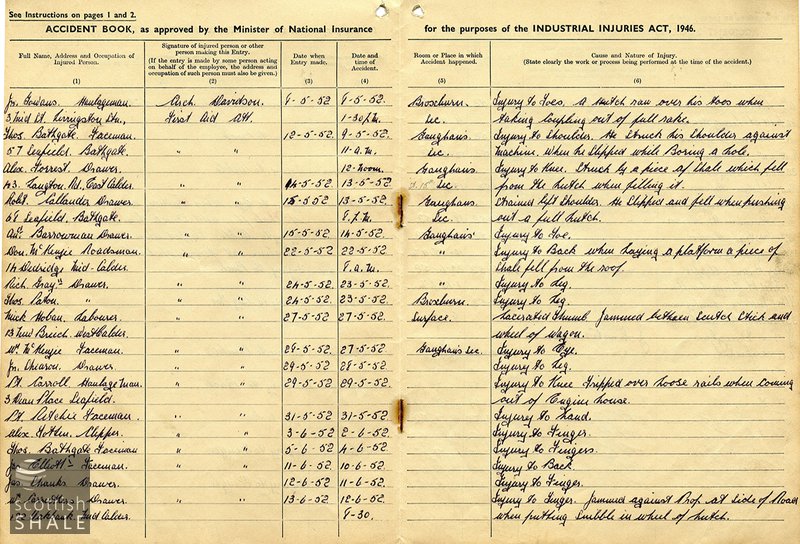 See Instructions on pages 1 and 2.
ACCIDENT BOOK, as approved by the Minister of National Insurance for the purposes of the INDUSTRIAL INJURIES ACT, 1946.
Full Name, Address and Occupation of Injured Person. (1)
Signature of injured person or other person making this Entry. (If the entry is made by some person acting on behalf of the employee, the address and occupation of such person must also be given.) (2)
Date when Entry made. (3)
Date and time of Accident. (4)
Room or Place in which Accident happened. (5)
Cause and Nature of Injury. (State clearly the work or process being performed at the time of the accident.) (6)
Jn. Gowans. Haulageman. Arch. Davidson. 9-5-52. 9-5-52. Broxburn Injury to Toes. A Hutch ran over his toes when
3 Mid Ct. First Aid Att. 1-30 P.M. Sec. taking coupling out of full rake.
Thos. Bathgate. Faceman. " " 12-5-52. 9-5-52. Gaughans Injury to Shoulder. He struck his Shoulder against
57 Leafield, Bathgate. " " 11-a.m. Sec. Machine, when He slipped while Boring a hole.
Alex. Forrest, Drawer. 12-Noon. Gaughans Injury to Knee. Struck by a piece of Shale which fell
43 Langton Rd. East Calder. " " 14-5-52 13-5-52 Sec. from the hutch when filling it.
Robt. Callander Drawer " " 15-5-52 13-5-52. Gaughans Strained left Shoulder. He Slipped and fell when pushing
Leafield, Bathgate. Sec. out a full hutch.
Barrowman Drawer. " " 15-5-52 14-5-52. Gaughans' Injury to Toe.
Don. McKenzie Roadsman. " " 22-5-52 22-5-52 " Injury to Back when laying a platform a piece of
14 Dedridge Mid-Calder. 9.a.m. Shale fell from the roof
Rich. Gray Drawer. " " 24-5-52. 23-5-52. " Injury to Leg.
Thos. Paton " " " 24-5-52. 23-5-52. Broxburn. Injury to Leg.
Mick Hoban. Labourer. " " 27-5-52. 27-5-52. Surface. Lacerated Thumb. Jammed between Scutch Stick and
13 Breich West Calder. wheel of wagon.
Wm. McKenzie Faceman. " " 29-5-52. 27-5-52. Gaughans Sec. Injury to Eye.
Jn. Drawer. " " 29-5-52. 28-5-52. Injury to Leg.
Pt. Carroll Haulage Man. " " 29-5-52. 29-5-52. Injury to Knee Tripped over loose rails when coming
3 Place Leafield. out of Engine house.
Pt. Ritchie Faceman. " " 31-5-52. 31-5-52. Injury to Hand.
Alex. Clipper. " " 3-6-52 2-6-52. Injury to Finger.
Thos. Bathgate Faceman " " 5-6-52 4-6-52. Injury to Fingers.
Jas Elliott Faceman. " " 11-6-52. 10-6-52. Injury to Back
Jas Shanks Drawer. " " 12-6-52 11-6-52. Injury to Finger.
Wm. Drawer " " 13-6-52 12-6-52. Injury to Finger. Jammed against Prop at Side of Road
Mid Calder. 9-30. when putting Snibble in wheel of hutch.
scottish
SHALE